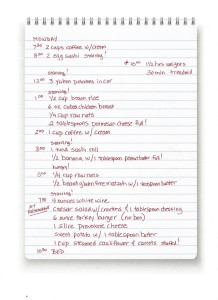 MONDAY
7:00 2 cups coffee w/cream
8:00 2 egg sushi starving!
*10:00 1 1/2 hrs weights
starving! 30 min treadmill
12:00 3 yukon potatoes in car
starving!
1:00 1/2 cup brown rice
6 oz cubed chicken breast
1/4 cup raw nuts
2 tablespoons parmesan cheese full!
2:00 1 cup coffee w/ cream
starving!
3:00 1 tuna sushi roll
1/2 banana w/1 tablespoon peanut butter full!
hungry!
5:00 1/4 cup raw nuts
1/2 w/1 tablespoon butter
starving!
7:00 4 ounces white wine
AT RESTAURANT caesar salad w/croutons & 1 tablespoon dressing
6 ounce turkey burger (no bun)
1 slice provolone cheese
sweet potato w/1 tablespoon butter
1 cup steamed cauliflower & carrots stuffed!
10:00 BED